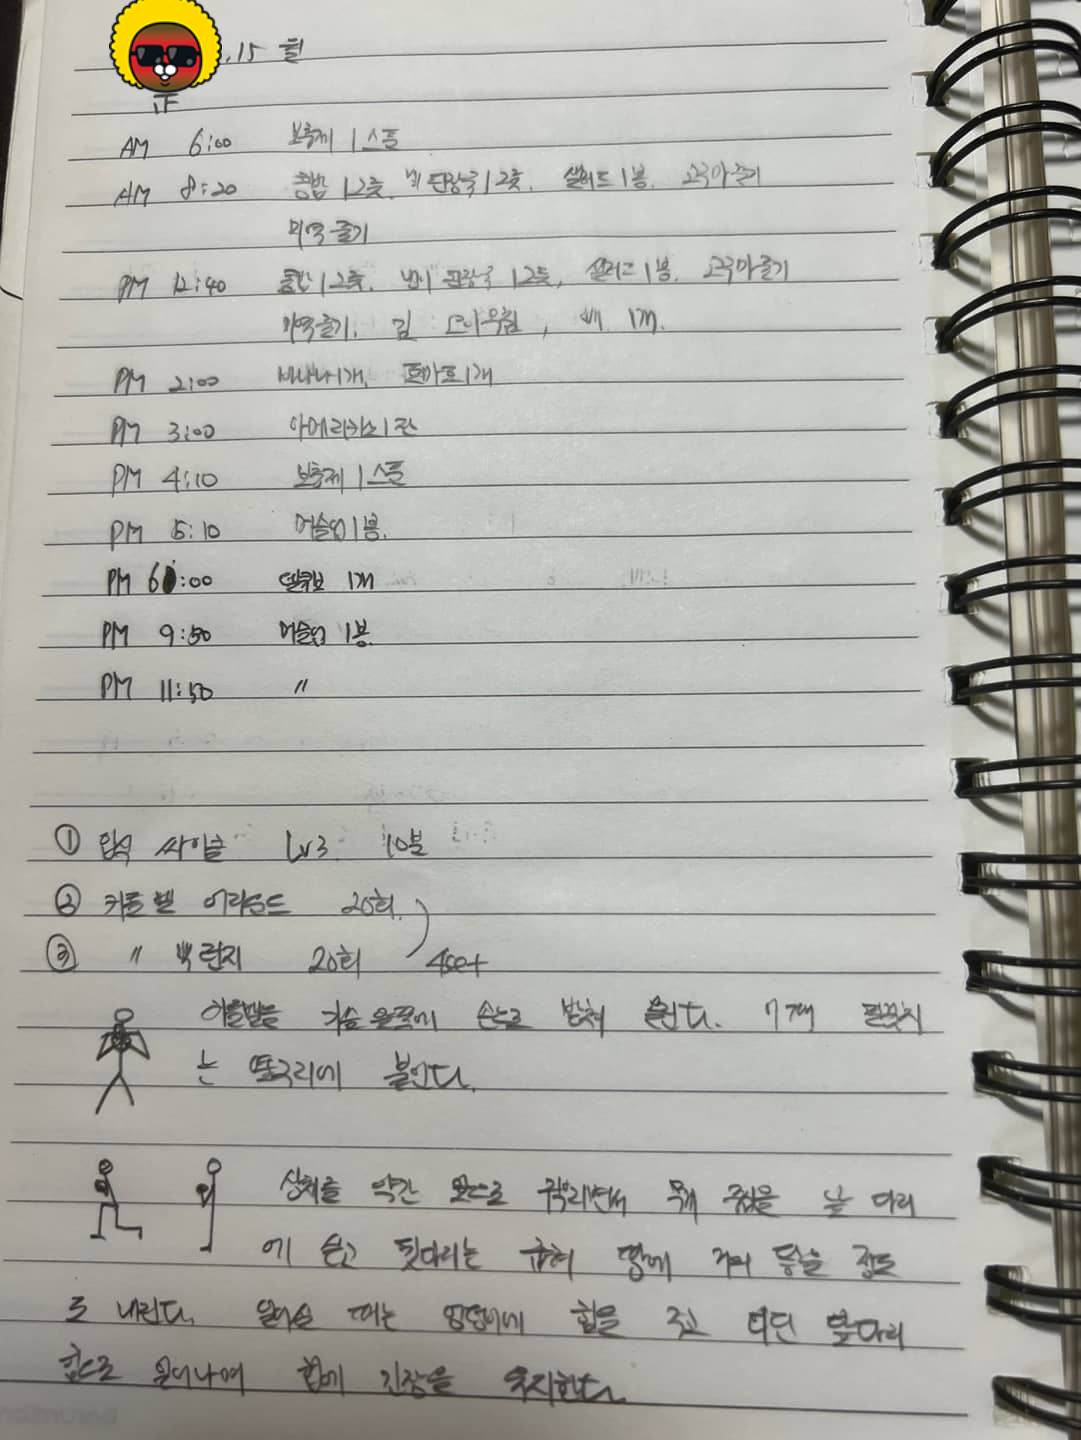 .15 화
正
AM 6:00 보충제 1스푼
AM 8:20 콩밥 1 2줒. 된장국 1 2줒. 샐러드 1봉. 고구마줄기
미역줄기
PM 12:40 콩밥 1 2줒. 된장국 1 2줒, 샐러드 1봉. 고구마줄기
미역줄기. 김 무침, 배 1개.
PM 2:00 바나나 1개. 토마토 1개
PM 3:00 아메리카노 1잔
PM 4:10 보충제 1스푼
PM 5:10 머슬업 1봉.
PM 6:00 1개
PM 9:50 머슬업 1봉.
PM 11:50 〃
① 입식 싸이클 Lv3 10분
② 캐틀벨 어라운드 20회.
③ 〃 백런지 20회 4set
가슴 윗쪽에 손으로 받쳐 올린다. 팔꿈치
는 옆구리에 붙인다.
상체를 약간 앞으로 구부리면서 무게 중심을 앞 다리
에 싣고 뒷다리는 굽혀 땅에 거의 닿을 정도
로 내린다. 일어설 때는 엉덩이에 힘을 주고 디딘 앞다리
힘으로 일어나며 긴장을 유지한다.